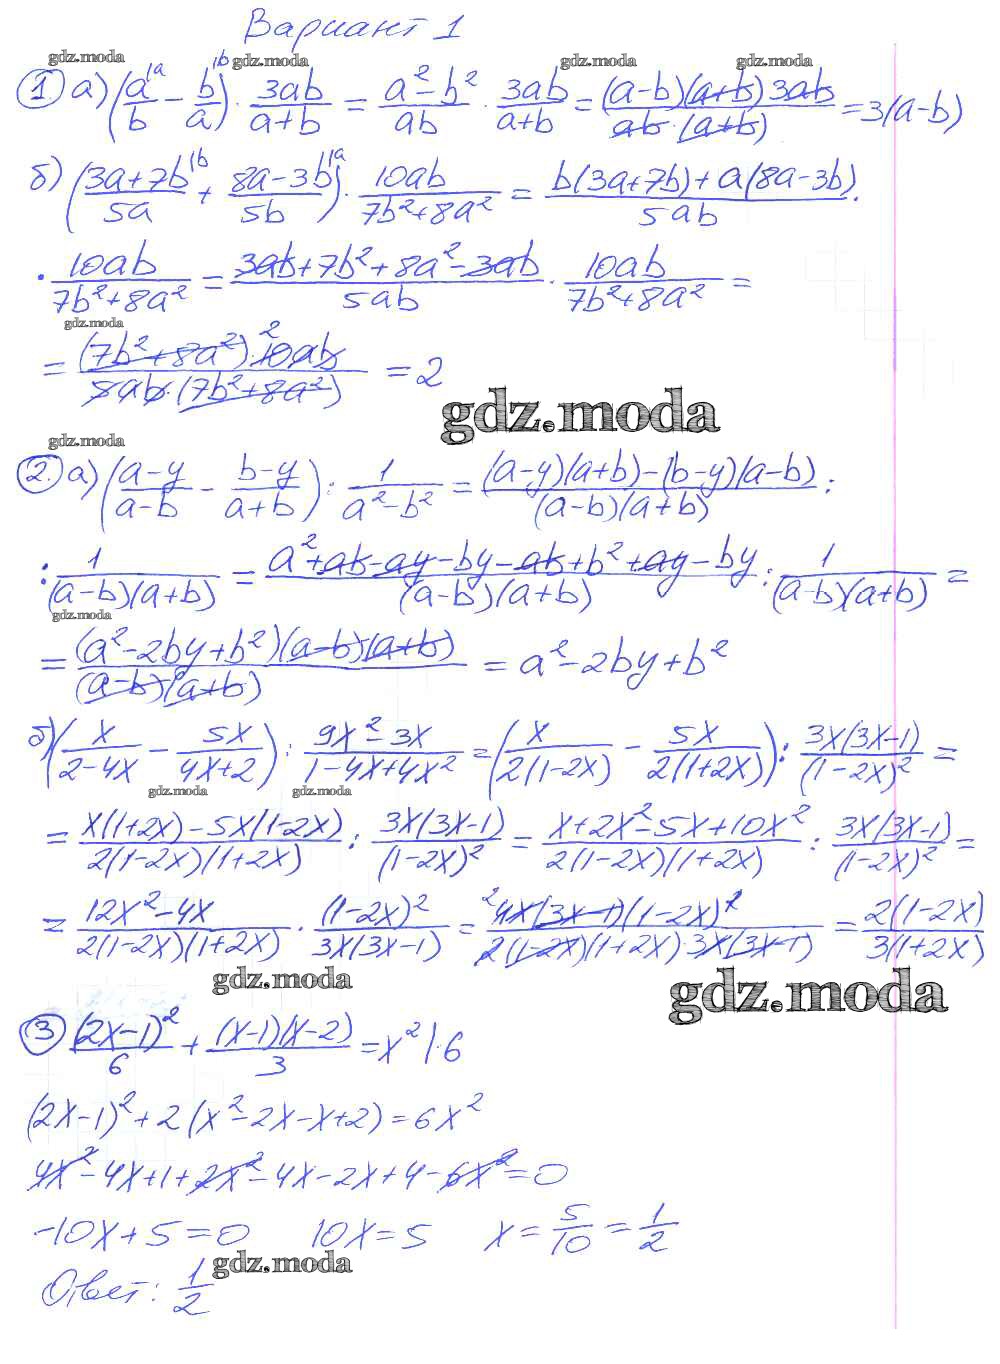 Вариант 1
gdz.moda gdz.moda gdz.moda gdz.moda
1 а) (a/b |a - b/a |b) · 3ab/(a+b) = (a² - b²)/ab · 3ab/(a+b) = (a-b)(a+b)3ab/(ab·(a+b)) = 3(a-b)
б) ((3a+7b)/5a |b + (8a-3b)/5b |a) · 10ab/(7b²+8a²) = (b(3a+7b)+a(8a-3b))/5ab ·
· 10ab/(7b²+8a²) = (3ab+7b²+8a²-3ab)/5ab · 10ab/(7b²+8a²) =
gdz.moda
= (7b²+8a²)·10ab 2/(5ab·(7b²+8a²)) = 2
gdz.moda
gdz.moda
2. а) ((a-y)/(a-b) - (b-y)/(a+b)) : 1/(a²-b²) = ((a-y)(a+b)-(b-y)(a-b))/((a-b)(a+b)) :
: 1/((a-b)(a+b)) = (a²+ab-ay-by-ab+b²+ay-by)/((a-b)(a+b)) : 1/((a-b)(a+b)) =
gdz.moda
= (a²-2by+b²)(a-b)(a+b)/((a-b)(a+b)) = a²-2by+b²
б) (x/(2-4x) - 5x/(4x+2)) : (9x²-3x)/(1-4x+4x²) = (x/(2(1-2x)) - 5x/(2(1+2x))) : 3x(3x-1)/(1-2x)² =
gdz.moda gdz.moda
= (x(1+2x)-5x(1-2x))/(2(1-2x)(1+2x)) : 3x(3x-1)/(1-2x)² = (x+2x²-5x+10x²)/(2(1-2x)(1+2x)) : 3x(3x-1)/(1-2x)² =
= (12x²-4x)/(2(1-2x)(1+2x)) · (1-2x)²/(3x(3x-1)) = 2 4x(3x-1)(1-2x)²/(2(1-2x)(1+2x)·3x(3x-1)) = 2(1-2x)/(3(1+2x))
gdz.moda
gdz.moda
3 (2x-1)²/6 + (x-1)(x-2)/3 = x² |·6
(2x-1)²+2(x²-2x-x+2)=6x²
4x²-4x+1+2x²-4x-2x+4-6x²=0
-10x+5=0 10x=5 x=5/10=1/2
gdz.moda
Ответ: 1/2